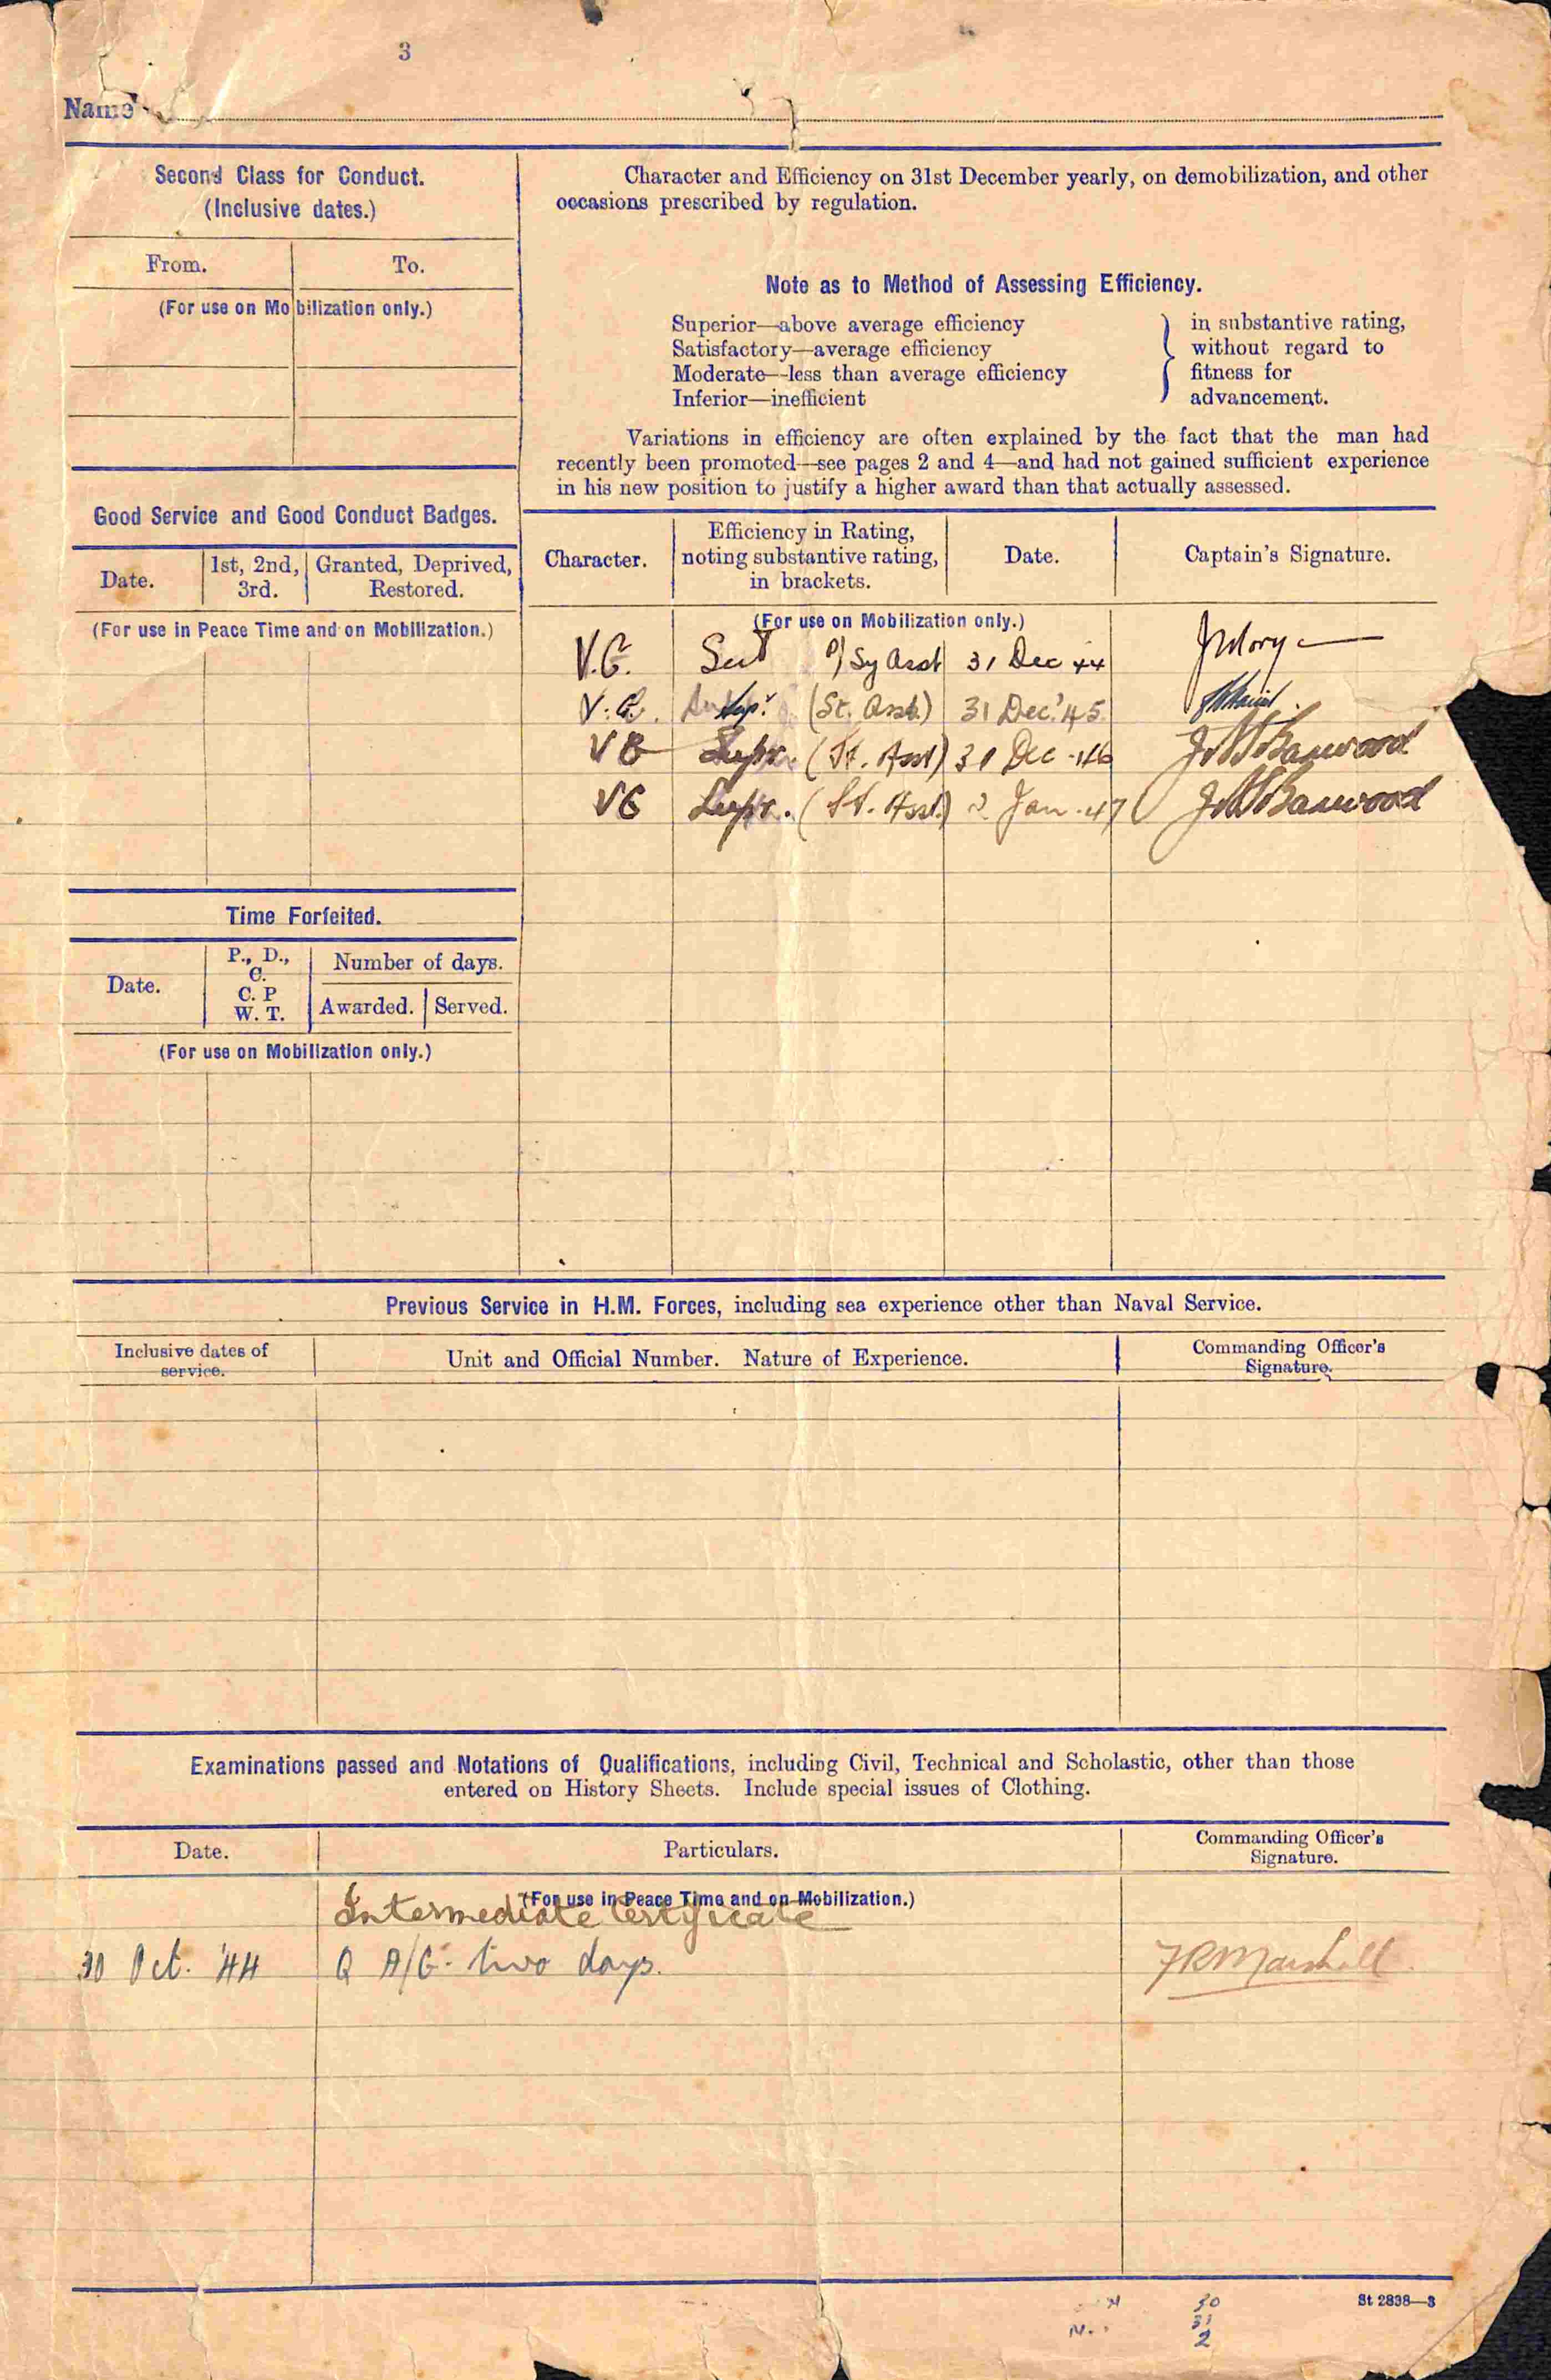 3
Name
Second Class for Conduct.
(Inclusive dates.)
From. To.
(For use on Mobilization only.)
Good Service and Good Conduct Badges.
Date. 1st, 2nd, 3rd. Granted, Deprived, Restored.
(For use in Peace Time and on Mobilization.)
Time Forfeited.
Date. P., D., C. C. P W. T. Number of days.
Awarded. Served.
(For use on Mobilization only.)
Character and Efficiency on 31st December yearly, on demobilization, and other
occasions prescribed by regulation.
Note as to Method of Assessing Efficiency.
Superior—above average efficiency
Satisfactory—average efficiency
Moderate—less than average efficiency
Inferior—inefficient
in substantive rating,
without regard to
fitness for
advancement.
Variations in efficiency are often explained by the fact that the man had
recently been promoted—see pages 2 and 4—and had not gained sufficient experience
in his new position to justify a higher award than that actually assessed.
Character. Efficiency in Rating, noting substantive rating, in brackets. Date. Captain's Signature.
(For use on Mobilization only.)
V.G. Sat P/ Sy Asst 31 Dec 44
V.G. Supr. (St. Asst.) 31 Dec. '45
VG Supr. (St. Asst) 31 Dec -46
VG Supr. (St. Asst.) 2 Jan -47
Previous Service in H.M. Forces, including sea experience other than Naval Service.
Inclusive dates of service. Unit and Official Number. Nature of Experience. Commanding Officer's Signature.
Examinations passed and Notations of Qualifications, including Civil, Technical and Scholastic, other than those
entered on History Sheets. Include special issues of Clothing.
Date. Particulars. Commanding Officer's Signature.
(For use in Peace Time and on Mobilization.)
Intermediate Certificate
30 Oct. '44 Q A/G. two days. FRMarshall
St 2838—3
30
31
2